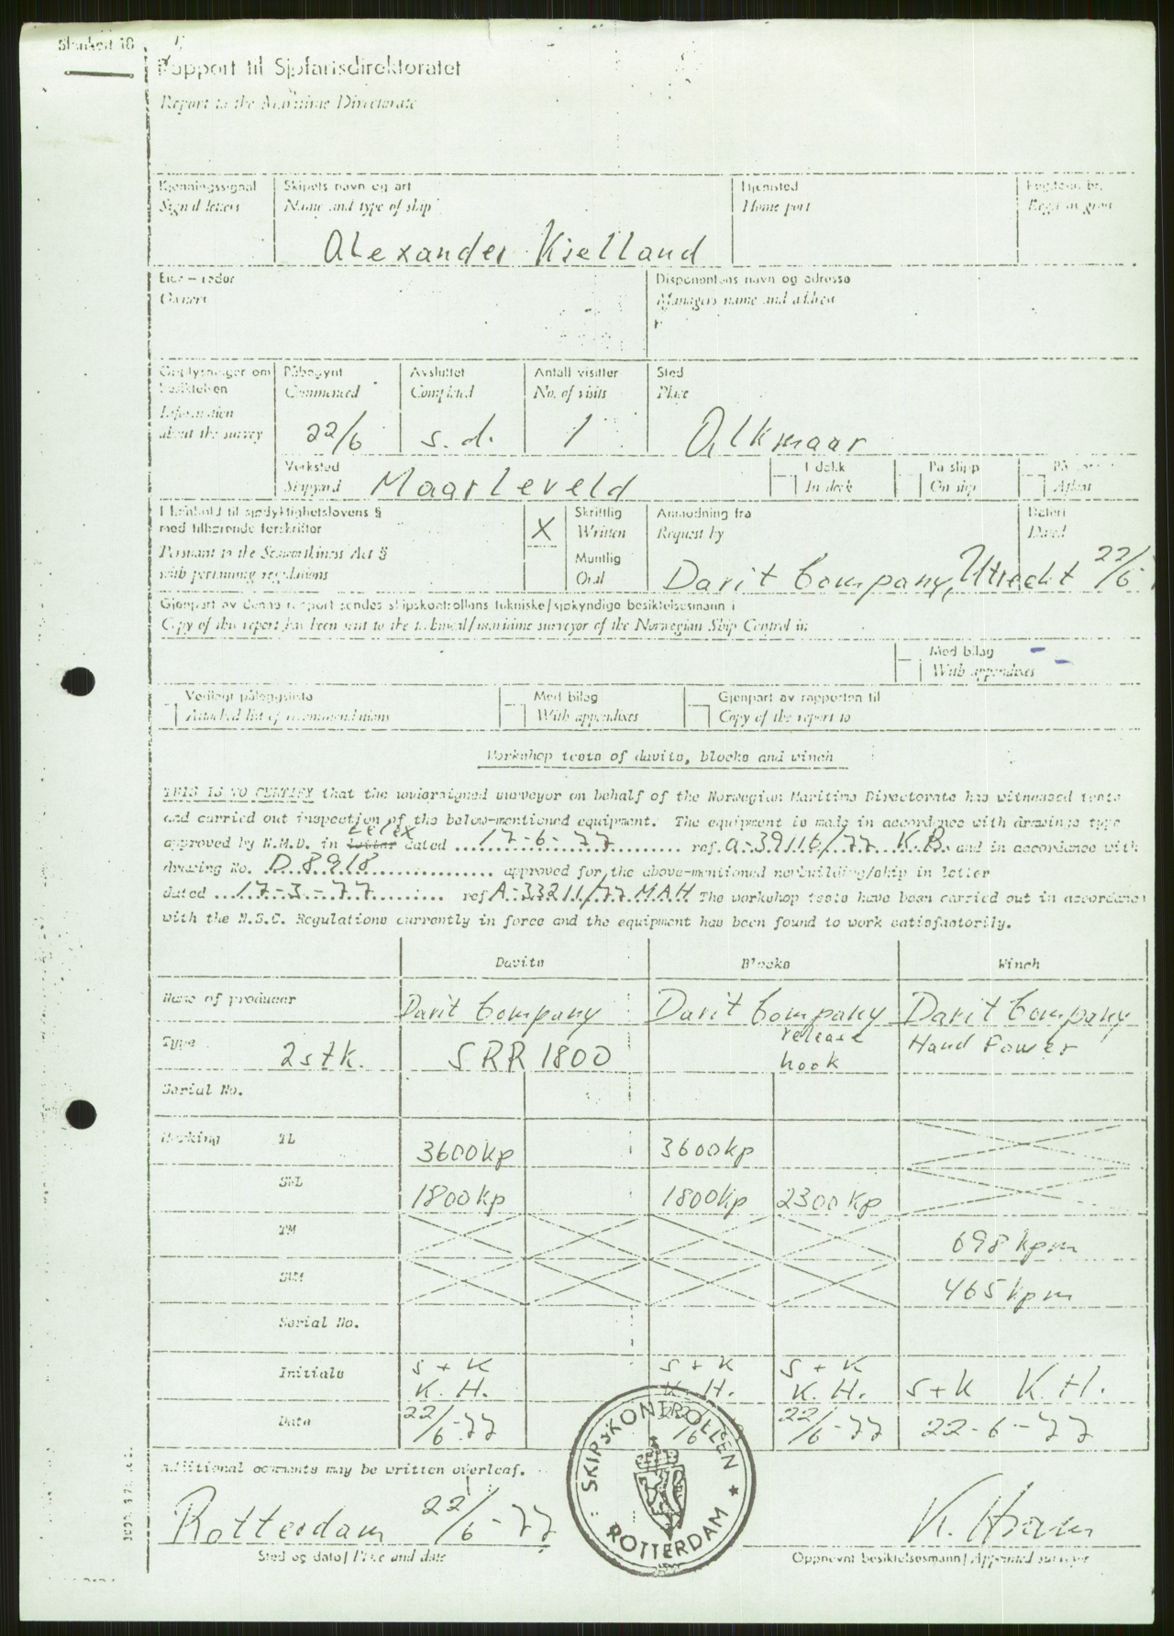 Blankett 18
Rapport til Sjøfartsdirektoratet
Report to the Maritime Directorate
Kjenningssignal
Signal letters
Skipets navn og art
Name and type of ship
Alexander Kielland
Hjemsted
Home port
Eier – reder
Owners
Disponentens navn og adresse
Managers name and address
Opplysninger om
besiktelsen
Information
about the survey
Påbegynt
Commenced
22/6
Avsluttet
Completed
s.d.
Antall visitter
No. of visits
1
Sted
Place
Alkmaar
Verksted
Shipyard
Maarleveld
I dokk
In dock
På slipp
On slip
På
Afloat
I henhold til sjødyktighetslovens §
med tilhørende forskrifter
Pursuant to the Seaworthiness Act §
with pertaining regulations
X
Skriftlig
Written
Muntlig
Oral
Anmodning fra
Request by
Davit Company, Utrecht
Datert
Dated
22/6
Gjenpart av denne rapport sendes skipskontrollens tekniske/sjøkyndige besiktelsesmann i
Copy of this report has been sent to the technical/maritime surveyor of the Norwegian Ship Control in
Med bilag
With appendixes
Vedlagt påleggsliste
Attached list of recommendations
Med bilag
With appendixes
Gjenpart av rapporten til
Copy of the report to
Workshop tests of davits, blocks and winch
THIS IS TO CERTIFY that the undersigned surveyor on behalf of the Norwegian Maritime Directorate has witnessed tests
and carried out inspection of the below-mentioned equipment. The equipment is made in accordance with drawings type
approved by N.M.D. in letter telex dated 17-6-77 ref. A-39116/77 K.B. and in accordance with
drawing No. D 8918 approved for the above-mentioned newbuilding/ship in letter
dated 17-3-77 ref A-33211/77 MAH The workshop tests have been carried out in accordance
with the N.S.C. Regulations currently in force and the equipment has been found to work satisfactorily.
Davits Blocks Winch
Name of producer Davit Company Davit Company Davit Company
Type 2 stk. SRR 1800 release hook Hand Power
Serial No.
Marking TL 3600kp 3600kp
SWL 1800kp 1800kp 2300kp
TM 698 kpm
SWM 465 kpm
Serial No.
Initials S+K K.H. S+K K.H. S+K K.H. S+K K.H.
Date 22/6-77 22/6 22/6-77 22-6-77
Additional comments may be written overleaf.
Rotterdam 22/6-77
Sted og dato/Place and date
SKIPSKONTROLLEN
ROTTERDAM
Oppnevnt besiktelsesmann/Appointed surveyor